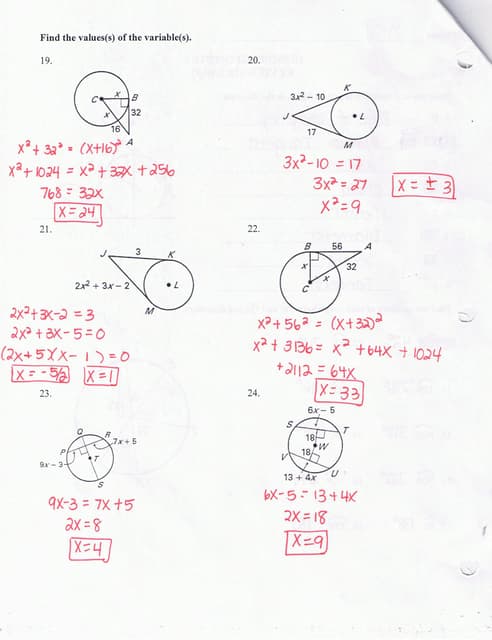 Find the values(s) of the variable(s).
19.
C
x
B
x
32
16
A
x² + 32² = (x+16)²
x² + 1024 = x² + 32x + 256
768 = 32x
x = 24
20.
3x² – 10
K
J
L
17
M
3x² - 10 = 17
3x² = 27
x² = 9
x = ± 3
21.
J
3
K
2x² + 3x – 2
L
M
2x² + 3x - 2 = 3
2x² + 3x - 5 = 0
(2x + 5)(x - 1) = 0
x = -5/2
x = 1
22.
B
56
A
x
32
x
C
x² + 56² = (x+32)²
x² + 3136 = x² + 64x + 1024
+2112 = 64x
x = 33
23.
Q
R
7x + 5
P
T
9x – 3
S
9x - 3 = 7x + 5
2x = 8
x = 4
24.
6x – 5
S
T
18
W
18
V
U
13 + 4x
6x - 5 = 13 + 4x
2x = 18
x = 9